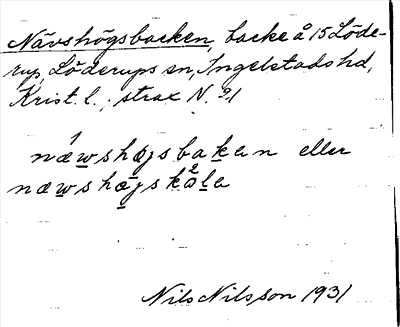 Nävshögsbacken, backe å 15 Löde-
rup, Löderups sn, Ingelstads hd,
Krist. l.; strax N. 21
næwshøgsbakan eller
næwshøgskåla
Nils Nilsson 1931